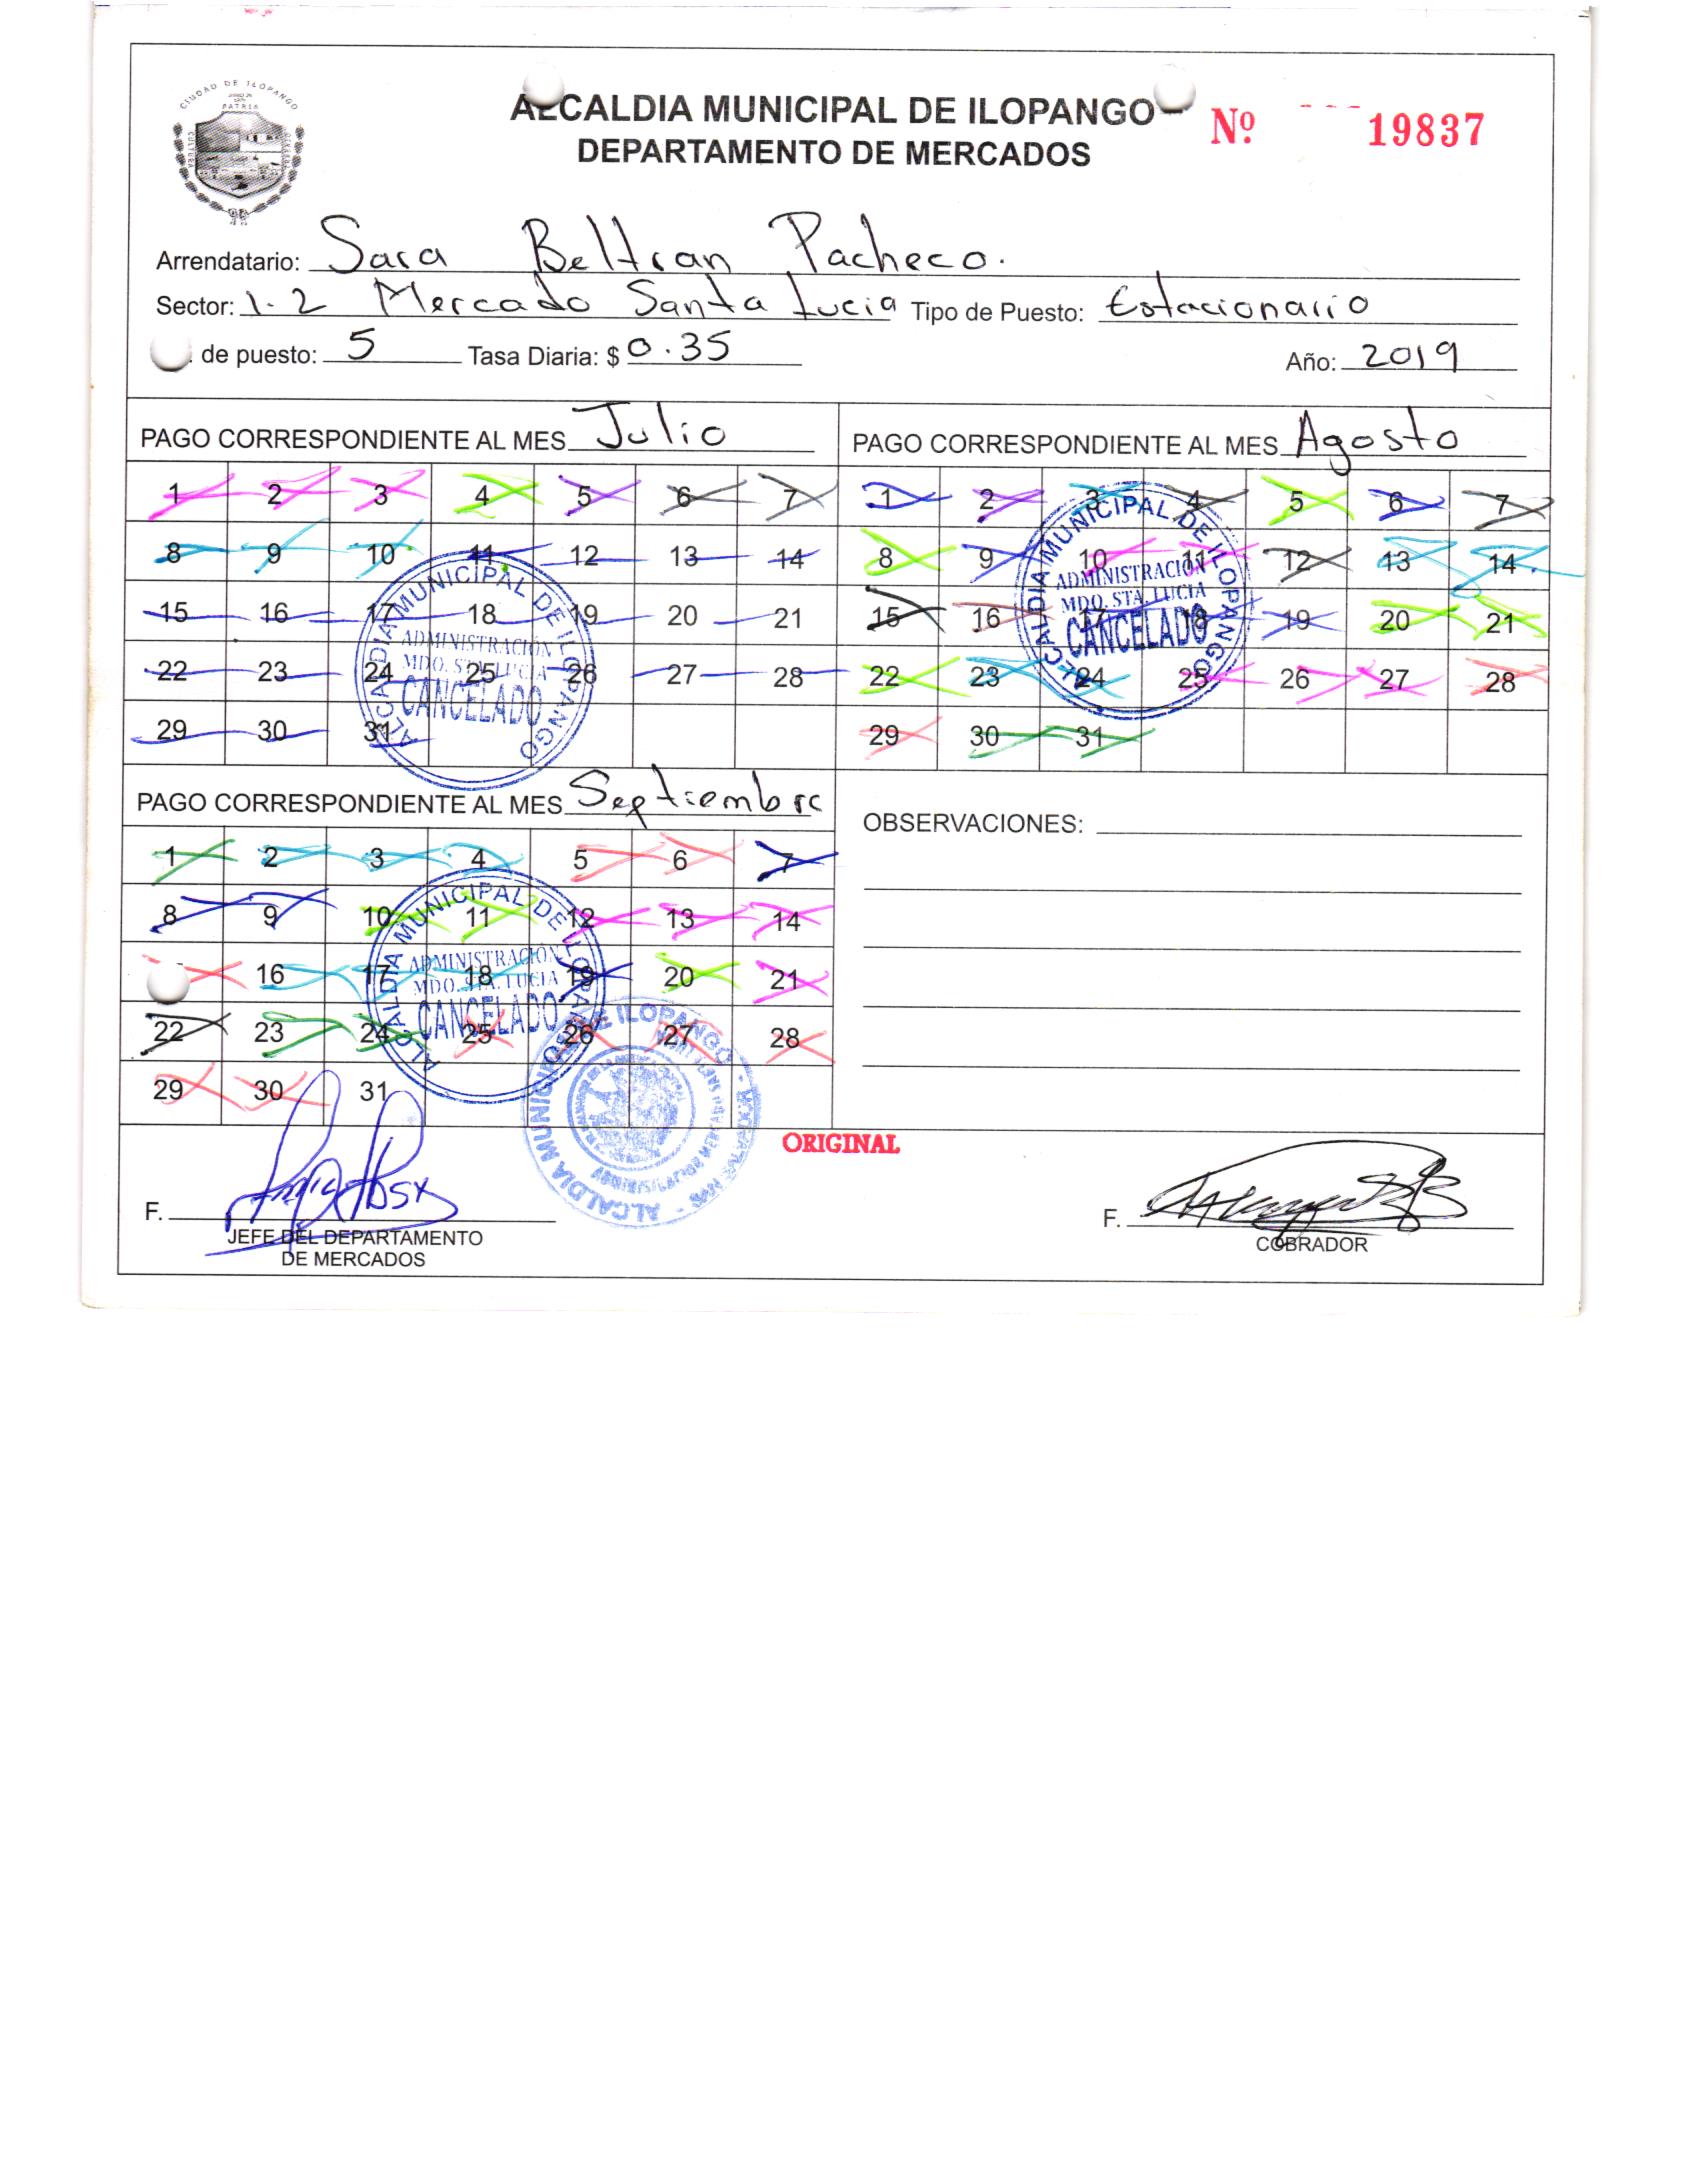 CIUDAD DE ILOPANGO
PATRIA
CULTURA
ALCALDIA MUNICIPAL DE ILOPANGO
Nº 19837
DEPARTAMENTO DE MERCADOS
Arrendatario: Sara Beltran Pacheco.
Sector: 1-2 Mercado Santa Lucia Tipo de Puesto: Estacionario
. de puesto: 5 Tasa Diaria: $ 0.35 Año: 2019
PAGO CORRESPONDIENTE AL MES Julio
1 2 3 4 5 6 7
8 9 10 11 12 13 14
15 16 17 18 19 20 21
22 23 24 25 26 27 28
29 30 31
ALCALDIA MUNICIPAL DE ILOPANGO
ADMINISTRACIÓN
MDO. STA. LUCIA
CANCELADO
PAGO CORRESPONDIENTE AL MES Agosto
1 2 3 4 5 6 7
8 9 10 11 12 13 14
15 16 17 18 19 20 21
22 23 24 25 26 27 28
29 30 31
ALCALDIA MUNICIPAL DE ILOPANGO
ADMINISTRACIÓN
MDO. STA. LUCIA
CANCELADO
PAGO CORRESPONDIENTE AL MES Septiembre
1 2 3 4 5 6 7
8 9 10 11 12 13 14
16 17 18 19 20 21
22 23 24 25 26 27 28
29 30 31
ALCALDIA MUNICIPAL DE ILOPANGO
ADMINISTRACIÓN
MDO. STA. LUCIA
CANCELADO
OBSERVACIONES:
ALCALDIA MUNICIPAL DE ILOPANGO
ORIGINAL
F.
JEFE DEL DEPARTAMENTO
DE MERCADOS
F.
COBRADOR